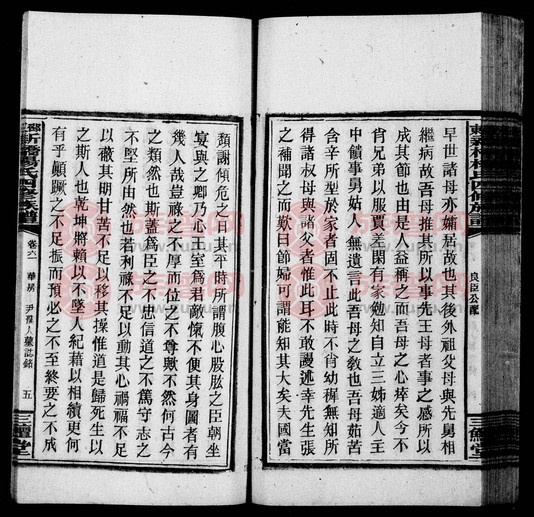 早世諸母亦孀居故也其後外祖父母與先舅相
繼病故吾母推其所以事先王母者事之感所以
成其節也由是人益稱之而吾母之心瘁矣今不
肖兄弟以服賈差閑有家勉知自立三姊適人主
中饋事舅姑人無遺言此吾母之教也吾母茹苦
含辛所型於家者固不止此時不肖幼稺無知所
得諸叔母與諸父者惟此耳不敢謾述幸先生張
之補聞之而歎曰節婦可謂能知其大矣夫國當
良臣公配
三鱣堂
頹謝傾危之日其平時所謂腹心股肱之臣朝坐
宴與之卿乃心王室爲君敵愾不使其身圖者有
幾人哉豈祿之不厚而位之不尊歟不然何古今
之類然也斯蓋爲臣之不忠信道之不篤守志之
不堅所由然也若利祿不足以動其心禍福不足
以蔽其期甘苦不足以移其操惟道是歸死生以
之斯人也乾坤將賴以不墜人紀藉以相續更何
有乎顛蹶之不足振而預必之不至終要之不成
卷六一
華房
尹孺人蘭誌銘
五
三鱣堂